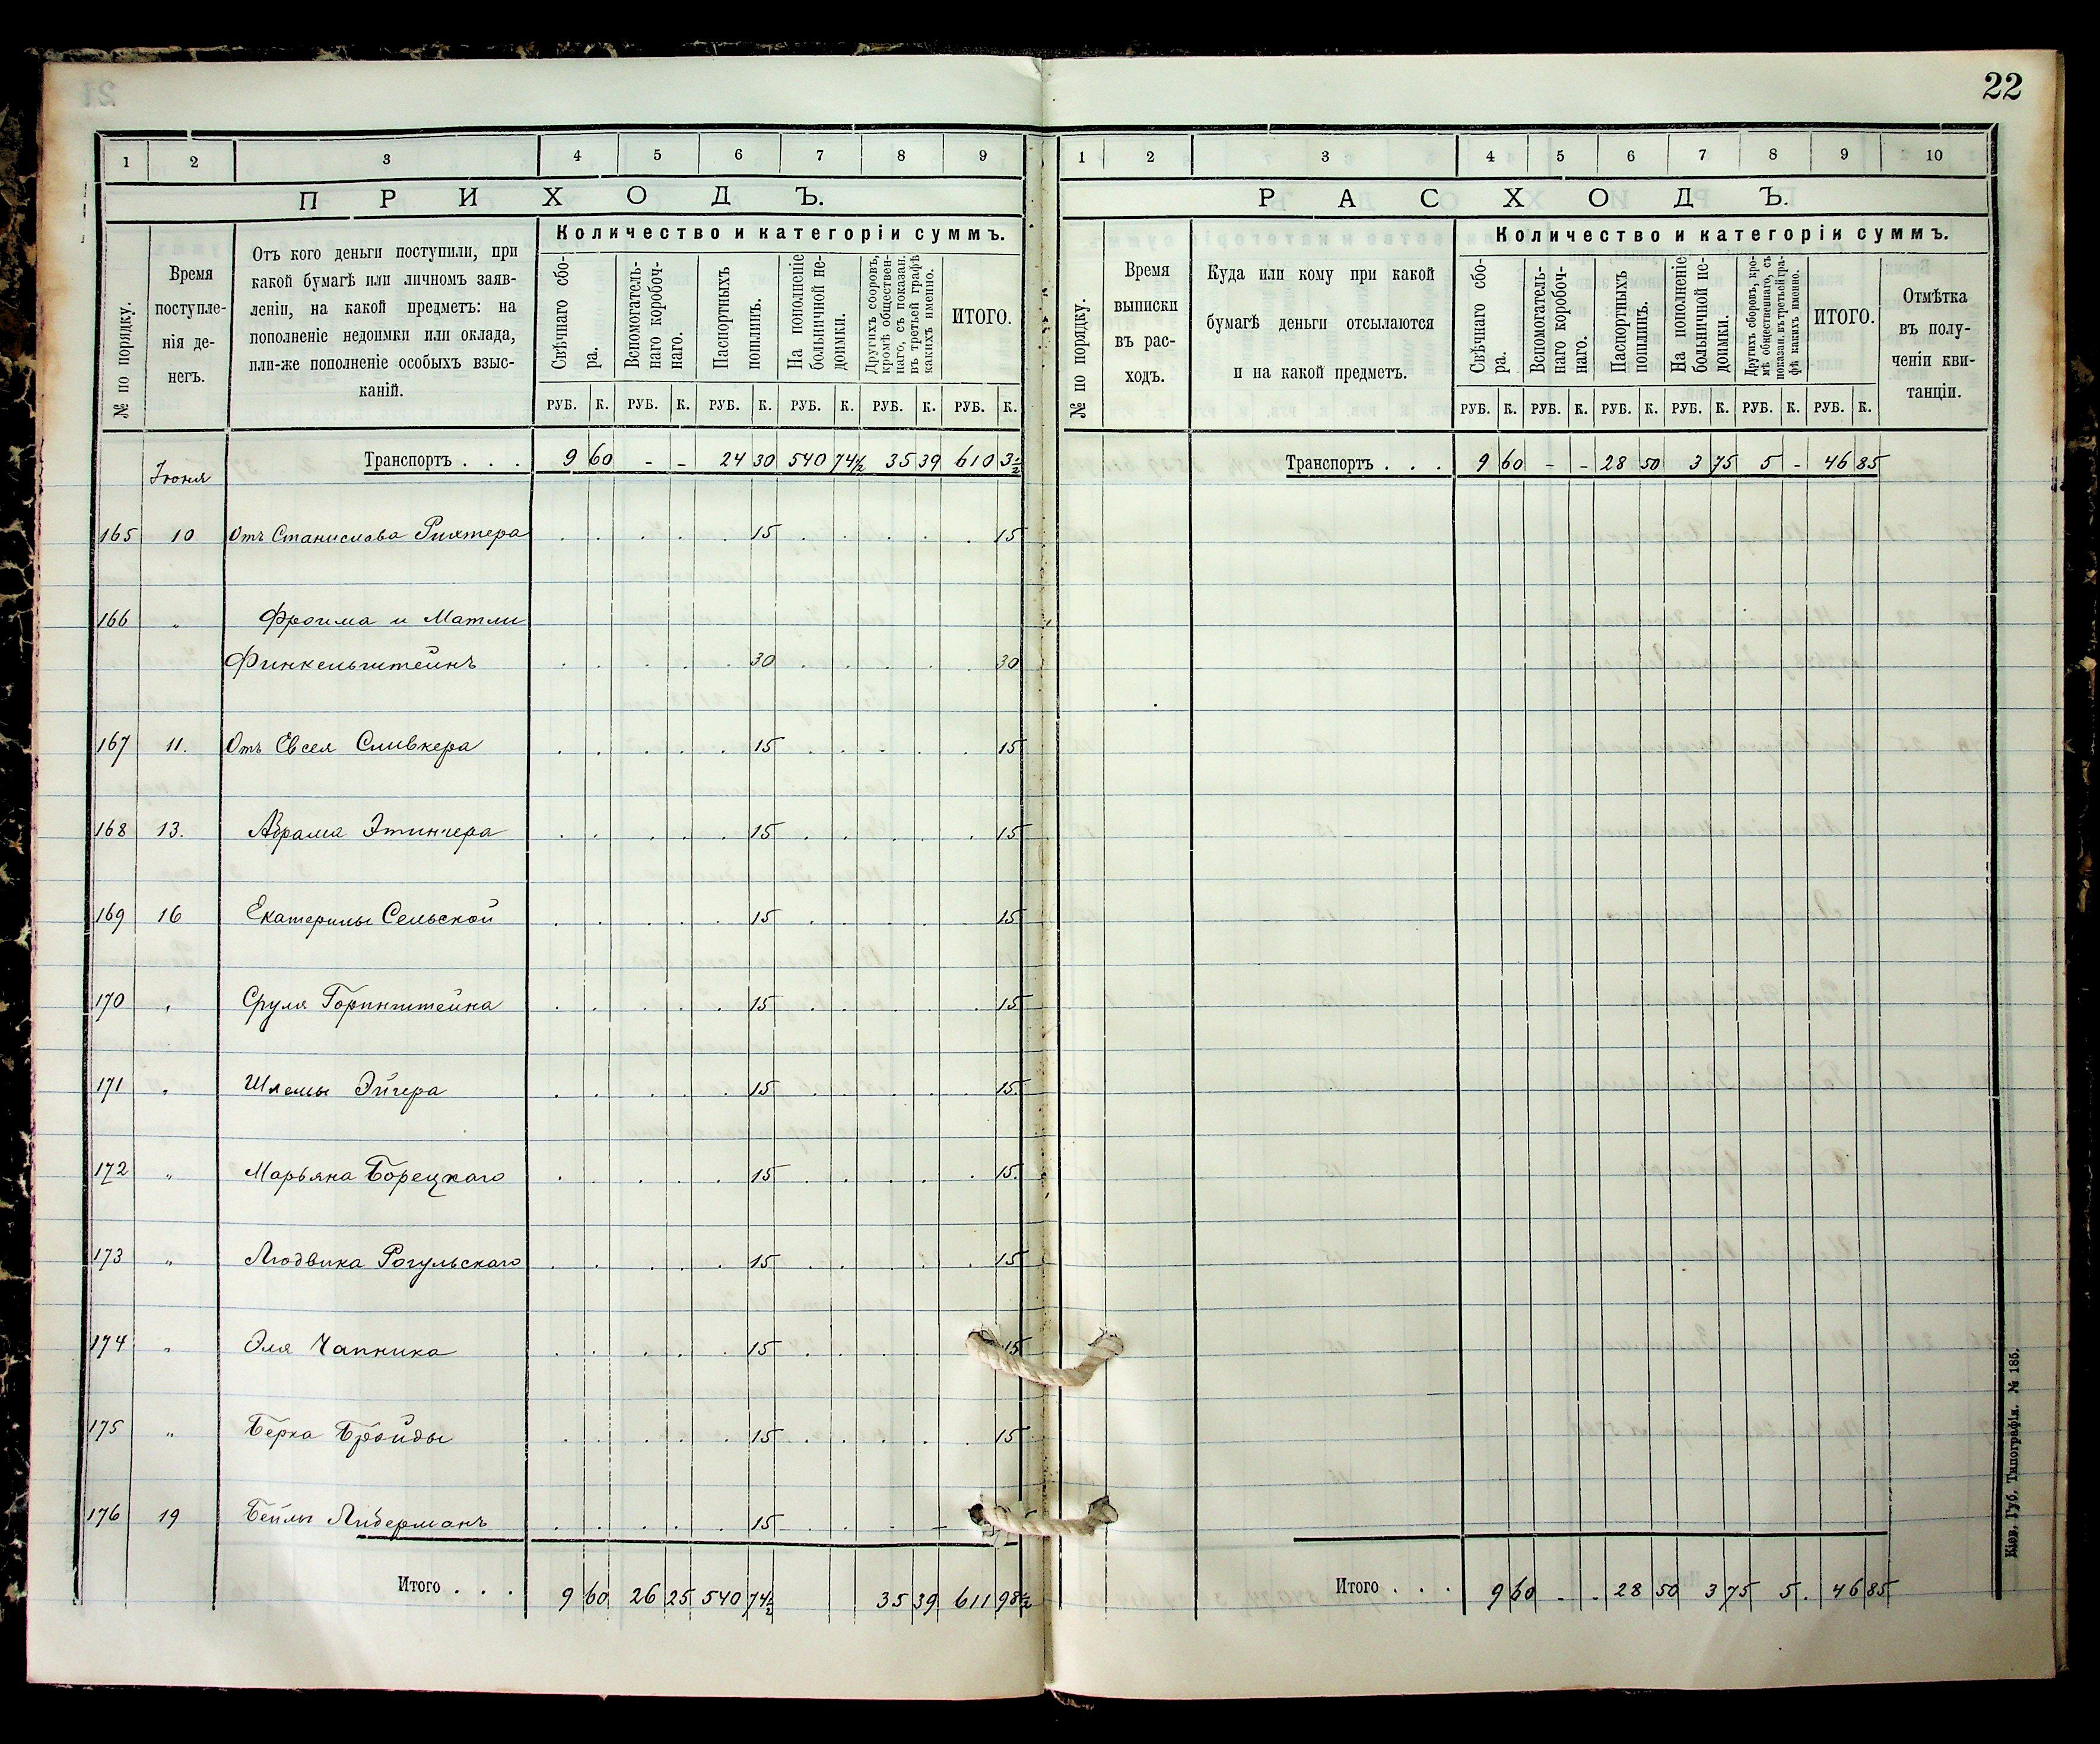 22
1 2 3 4 5 6 7 8 9
ПРИХОДЪ.
№ по порядку.
Время поступле-
нія де-
негъ.
Отъ кого деньги поступили, при
какой бумагѣ или личномъ заяв-
леніи, на какой предметъ: на
пополненіе недоимки или оклада,
или-же пополненіе особыхъ взыс-
каній.
Количество и категоріи суммъ.
Свѣчнаго сбо-
ра.
Вспомогатель-
наго коробоч-
наго.
Паспортныхъ
пошлинъ.
На пополненіе
больничной не-
доимки.
Другихъ сборовъ,
кромѣ обществен-
наго, съ показан.
въ третьей графѣ
какихъ именно.
ИТОГО.
РУБ. К. РУБ. К. РУБ. К. РУБ. К. РУБ. К. РУБ. К.
Транспортъ . . . 9 60 - - 24 30 540 74½ 35 39 610 3½
Іюня
165 10 Отъ Станислава Рихтера . . . . . 15 . . . . . 15
166 „ Фроима и Матли
Финкельштейнъ . . . . . 30 . . . . . 30
167 11. Отъ Евсея Сливкера . . . . . 15 . . . . . 15
168 13. Абрама Этингера . . . . . 15 . . . . . 15
169 16 Екатерины Сельской . . . . . 15 . . . . . 15
170 „ Сруля Горинштейна . . . . . 15 . . . . . 15
171 „ Шлемы Эйгера . . . . . 15 . . . . . 15.
172 „ Марьяна Борецкаго . . . . . 15 . . . . . 15.
173 „ Людвика Рогульскаго . . . . . 15 . . . . . 15
174 „ Эля Чапника . . . . . 15 . . . . 15
175 „ Берка Бройды . . . . . 15 . . . . . 15
176 19 Бейлы Либерманъ . . . . . 15 . . . .
Итого . . . 9 60 26 25 540 74½ 35 39 611 98½
1 2 3 4 5 6 7 8 9 10
РАСХОДЪ.
№ по порядку.
Время
выписки
въ рас-
ходъ.
Куда или кому при какой
бумагѣ деньги отсылаются
и на какой предметъ.
Количество и категоріи суммъ.
Свѣчнаго сбо-
ра.
Вспомогатель-
наго коробоч-
наго.
Паспортныхъ
пошлинъ.
На пополненіе
больничной не-
доимки.
Другихъ сборовъ, кро-
мѣ общественнаго, съ
показан. въ третьей гра-
фѣ какихъ именно.
ИТОГО.
Отмѣтка
въ полу-
ченіи кви-
танціи.
РУБ. К. РУБ. К. РУБ. К. РУБ. К. РУБ. К. РУБ. К.
Транспортъ . . . 9 60 - - 28 50 3 75 5 - 46 85
Итого . . . 9 60 . . 28 50 3 75 5 . 46 85
Кіев. Губ. Типографія. № 185.